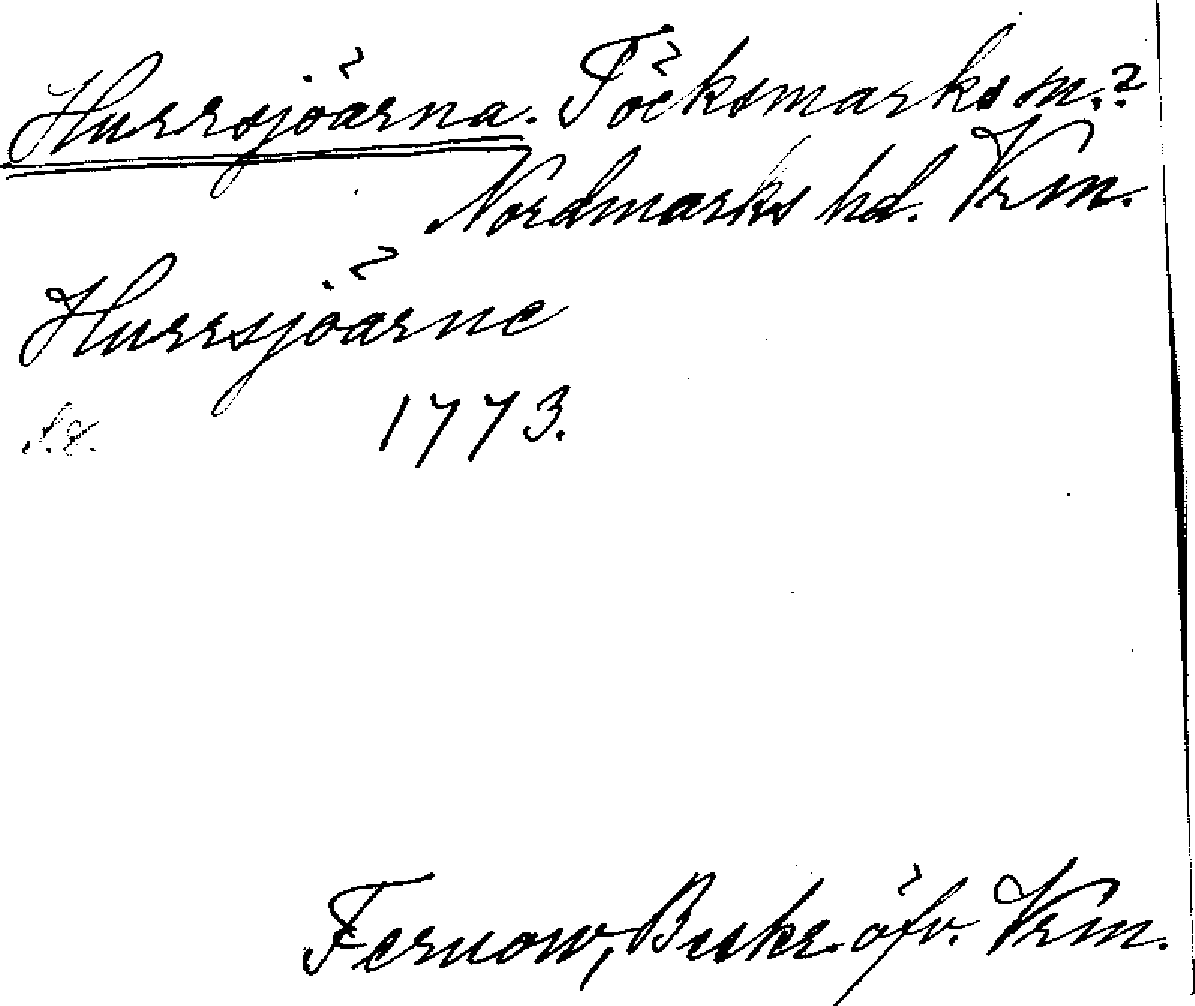 Hurrsjöärna. Töcksmarks sn.?
Nordmarks hd. Vrm.
Hurrsjöärne
1773.
Fernow, Beskr. öfv. Vrm.